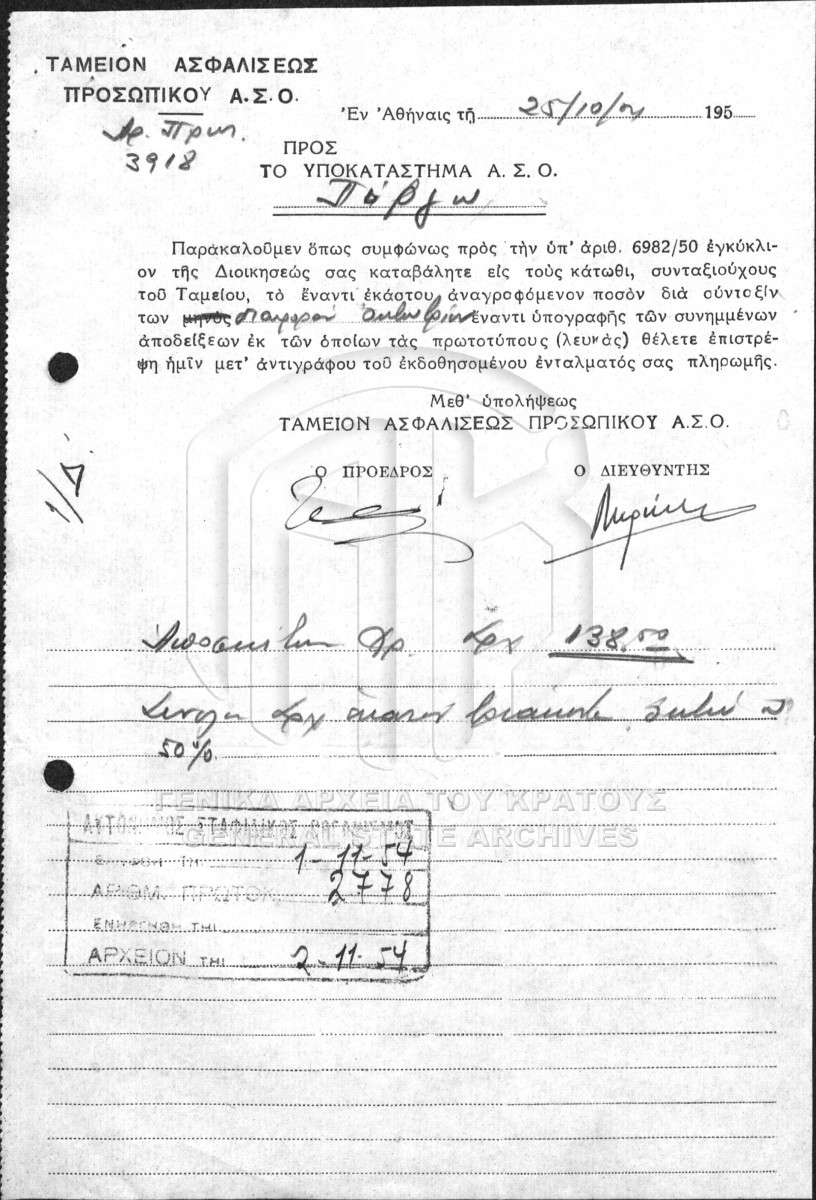 ΤΑΜΕΙΟΝ ΑΣΦΑΛΙΣΕΩΣ
ΠΡΟΣΩΠΙΚΟΥ Α.Σ.Ο.
Ἐν Ἀθήναις τῇ 25/10/54 195
Ἀρ. Πρωτ.
3918
ΠΡΟΣ
ΤΟ ΥΠΟΚΑΤΑΣΤΗΜΑ Α.Σ.Ο.
Πύργου
Παρακαλοῦμεν ὅπως συμφώνως πρὸς τὴν ὑπ' ἀριθ. 6982/50 ἐγκύκλι-
ον τῆς Διοικησεώς σας καταβάλητε εἰς τοὺς κάτωθι, συνταξιούχους
τοῦ Ταμείου, τὸ ἔναντι ἑκάστου ἀναγραφόμενον ποσὸν διὰ σύνταξίν
των μηνὸς ἔναντι ὑπογραφῆς τῶν συνημμένων
ἀποδείξεων ἐκ τῶν ὁποίων τὰς πρωτοτύπους (λευκὰς) θέλετε ἐπιστρέ-
ψη ἡμῖν μετ' ἀντιγράφου τοῦ ἐκδοθησομένου ἐντάλματός σας πληρωμῆς.
Μεθ' ὑπολήψεως
ΤΑΜΕΙΟΝ ΑΣΦΑΛΙΣΕΩΣ ΠΡΟΣΩΠΙΚΟΥ Α.Σ.Ο.
Ο ΠΡΟΕΔΡΟΣ Ο ΔΙΕΥΘΥΝΤΗΣ
1/Δ
Δρχ 138.50
Σύνολον Δρχ ἑκατὸν τριάκοντα ὀκτὼ
50%
ΓΕΝΙΚΑ ΑΡΧΕΙΑ ΤΟΥ ΚΡΑΤΟΥΣ
GENERAL STATE ARCHIVES
ΑΥΤΟΝΟΜΟΣ ΣΤΑΦΙΔΙΚΟΣ ΟΡΓΑΝΙΣΜΟΣ
ΕΛΗΦΘΗ ΤΗι 1-11-54
ΑΡΙΘΜ. ΠΡΩΤΟΚ. 2778
ΕΝΗΡΓΗΘΗ ΤΗι
ΑΡΧΕΙΟΝ ΤΗι 2-11-54